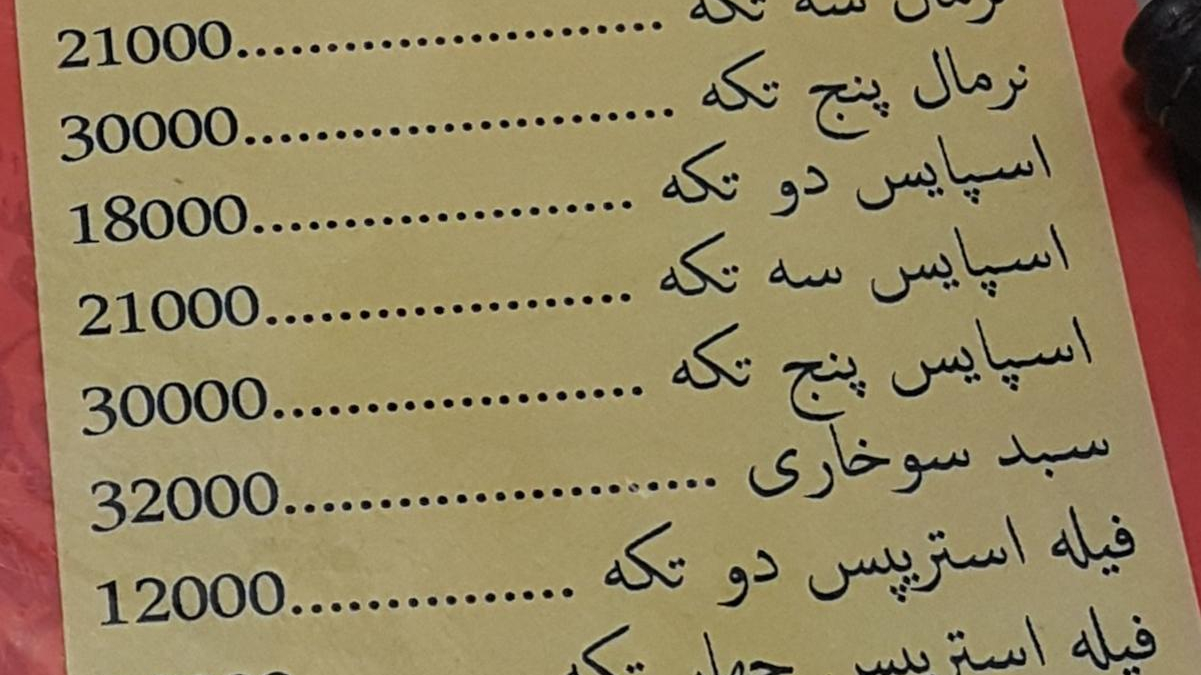 نرمال سه تکه ........................21000
نرمال پنج تکه ........................30000
اسپایس دو تکه .....................18000
اسپایس سه تکه ....................21000
اسپایس پنج تکه ....................30000
سبد سوخاری ........................32000
فیله استریپس دو تکه ...............12000
فیله استریپس چهار تکه